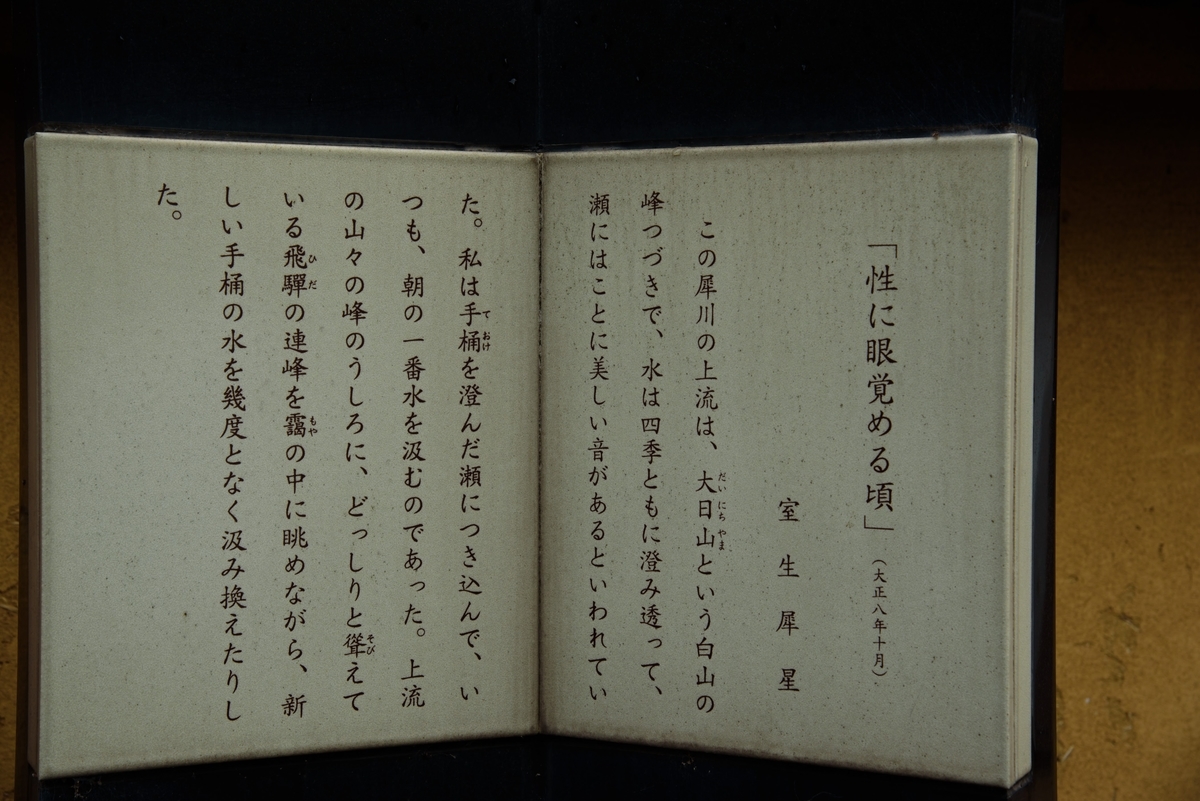 「性に眼覚める頃」(大正八年十月)
室生犀星
この犀川の上流は、大日山という白山の
峰つづきで、水は四季ともに澄み透って、
瀬にはことに美しい音があるといわれてい
た。私は手桶を澄んだ瀬につき込んで、い
つも、朝の一番水を汲むのであった。上流
の山々の峰のうしろに、どっしりと聳えて
いる飛驒の連峰を靄の中に眺めながら、新
しい手桶の水を幾度となく汲み換えたりし
た。